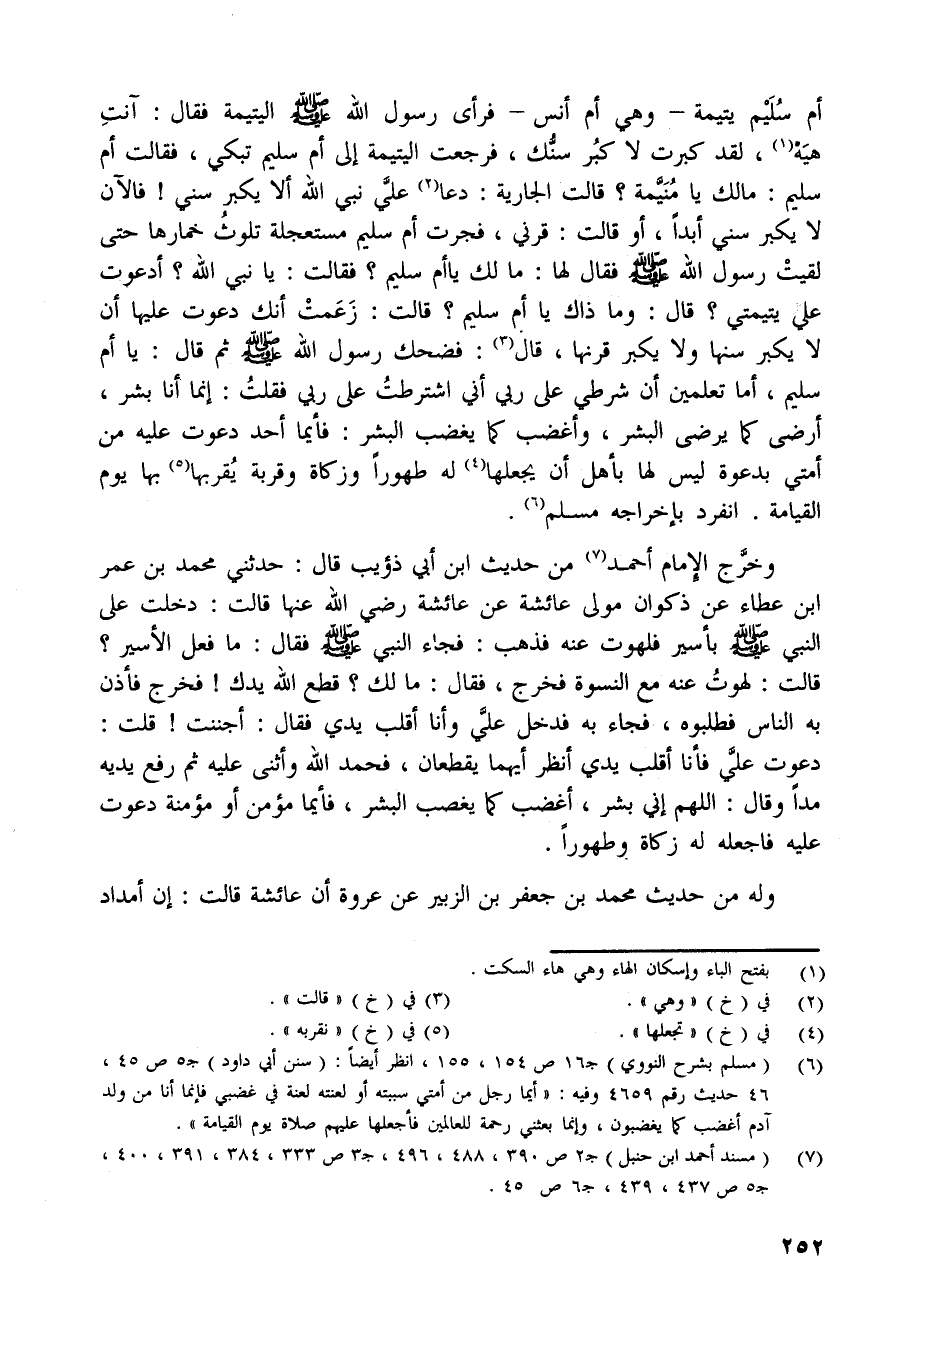 أم سُلَيْم يتيمة – وهي أم أنس – فرأى رسول الله ﷺ اليتيمة فقال : آنتِ
هيَهْ(١) ، لقد كبرت لا كبُر سنُّك ، فرجعت اليتيمة إلى أم سليم تبكي ، فقالت أم
سليم : مالك يا مُنَيَّمة ؟ قالت الجارية : دعا(٢) عليَّ نبي الله ألا يكبر سني ! فالآن
لا يكبر سني أبداً ، أو قالت : قرني ، فجرت أم سليم مستعجلة تلوثُ خمارها حتى
لقيتْ رسول الله ﷺ فقال لها : ما لك ياأم سليم ؟ فقالت : يا نبي الله ؟ أدعوت
علي يتيمتي ؟ قال : وما ذاك يا أم سليم ؟ قالت : زَعَمتْ أنك دعوت عليها أن
لا يكبر سنها ولا يكبر قرنها ، قال(٣) : فضحك رسول الله ﷺ ثم قال : يا أم
سليم ، أما تعلمين أن شرطي على ربي أني اشترطتُ على ربي فقلتُ : إنما أنا بشر ،
أرضى كما يرضى البشر ، وأغضب كما يغضب البشر : فأيما أحد دعوت عليه من
أمتي بدعوة ليس لها بأهل أن يجعلها(٤) له طهوراً وزكاة وقربة يُقربها(٥) بها يوم
القيامة . انفرد بإخراجه مسـلم(٦) .
وخرَّج الإمام أحمـد(٧) من حديث ابن أبي ذؤيب قال : حدثني محمد بن عمر
ابن عطاء عن ذكوان مولى عائشة عن عائشة رضي الله عنها قالت : دخلت على
النبي ﷺ بأسير فلهوت عنه فذهب : فجاء النبي ﷺ فقال : ما فعل الأسير ؟
قالت : لهوتُ عنه مع النسوة فخرج ، فقال : ما لك ؟ قطع الله يدك ! فخرج فأذن
به الناس فطلبوه ، فجاء به فدخل عليَّ وأنا أقلب يدي فقال : أجننت ! قلت :
دعوت عليَّ فأنا أقلب يدي أنظر أيهما يقطعان ، فحمد الله وأثنى عليه ثم رفع يديه
مداً وقال : اللهم إني بشر ، أغضب كما يغصب البشر ، فأيما مؤمن أو مؤمنة دعوت
عليه فاجعله له زكاة وطهوراً .
وله من حديث محمد بن جعفر بن الزبير عن عروة أن عائشة قالت : إن أمداد
(١) بفتح الباء وإسكان الهاء وهي هاء السكت .
(٢) في ( خ ) « وهي » . (٣) في ( خ ) « قالت » .
(٤) في ( خ ) « تجعلها » . (٥) في ( خ ) « نقربه » .
(٦) ( مسلم بشرح النووي ) جـ١٦ ص ١٥٤ ، ١٥٥ ، انظر أيضاً : ( سنن أبي داود ) جـ٥ ص ٤٥ ،
٤٦ حديث رقم ٤٦٥٩ وفيه : « أيما رجل من أمتي سببته أو لعنته لعنة في غضبي فإنما أنا من ولد
آدم أغضب كما يغضبون ، وإنما بعثني رحمة للعالمين فأجعلها عليهم صلاة يوم القيامة » .
(٧) ( مسند أحمد ابن حنبل ) جـ٢ ص ٣٩٠ ، ٤٨٨ ، ٤٩٦ ، جـ٣ ص ٣٣٣ ، ٣٨٤ ، ٣٩١ ، ٤٠٠ ،
جـ٥ ص ٤٣٧ ، ٤٣٩ ، جـ٦ ص ٤٥ .
٢٥٢